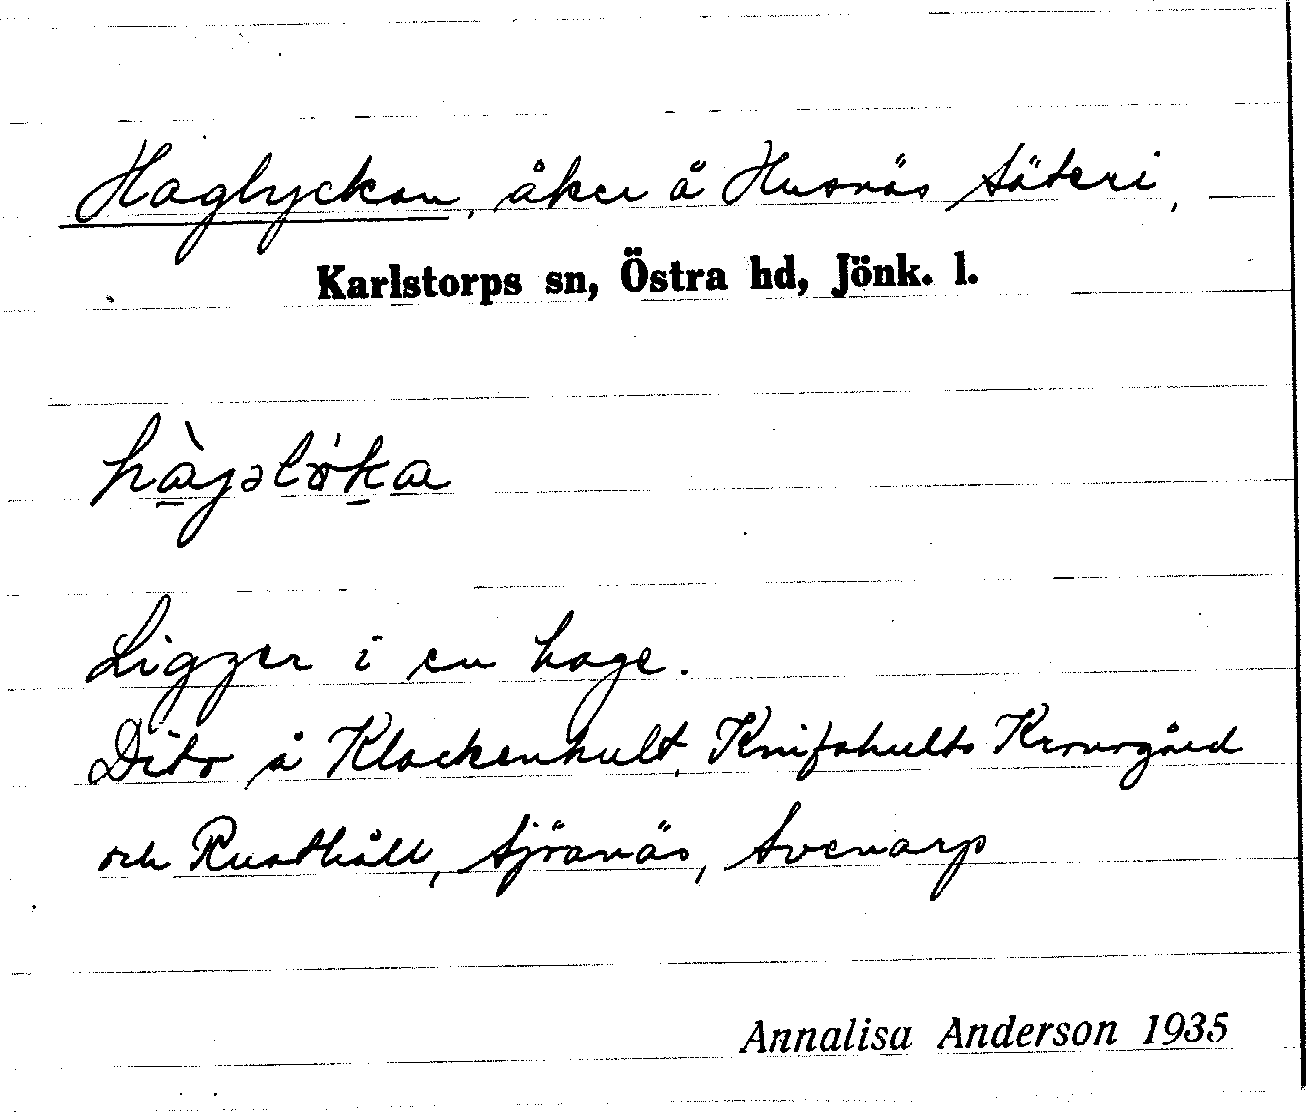 Haglyckan, åker å Husnäs Säteri,
Karlstorps sn, Östra hd, Jönk. l.
hàgəlö́ka
Ligger i en hage.
Dito å Klackenhult, Knifshults Kronogård
och Rusthåll, Sjöanäs, Svenarp
Annalisa Anderson 1935